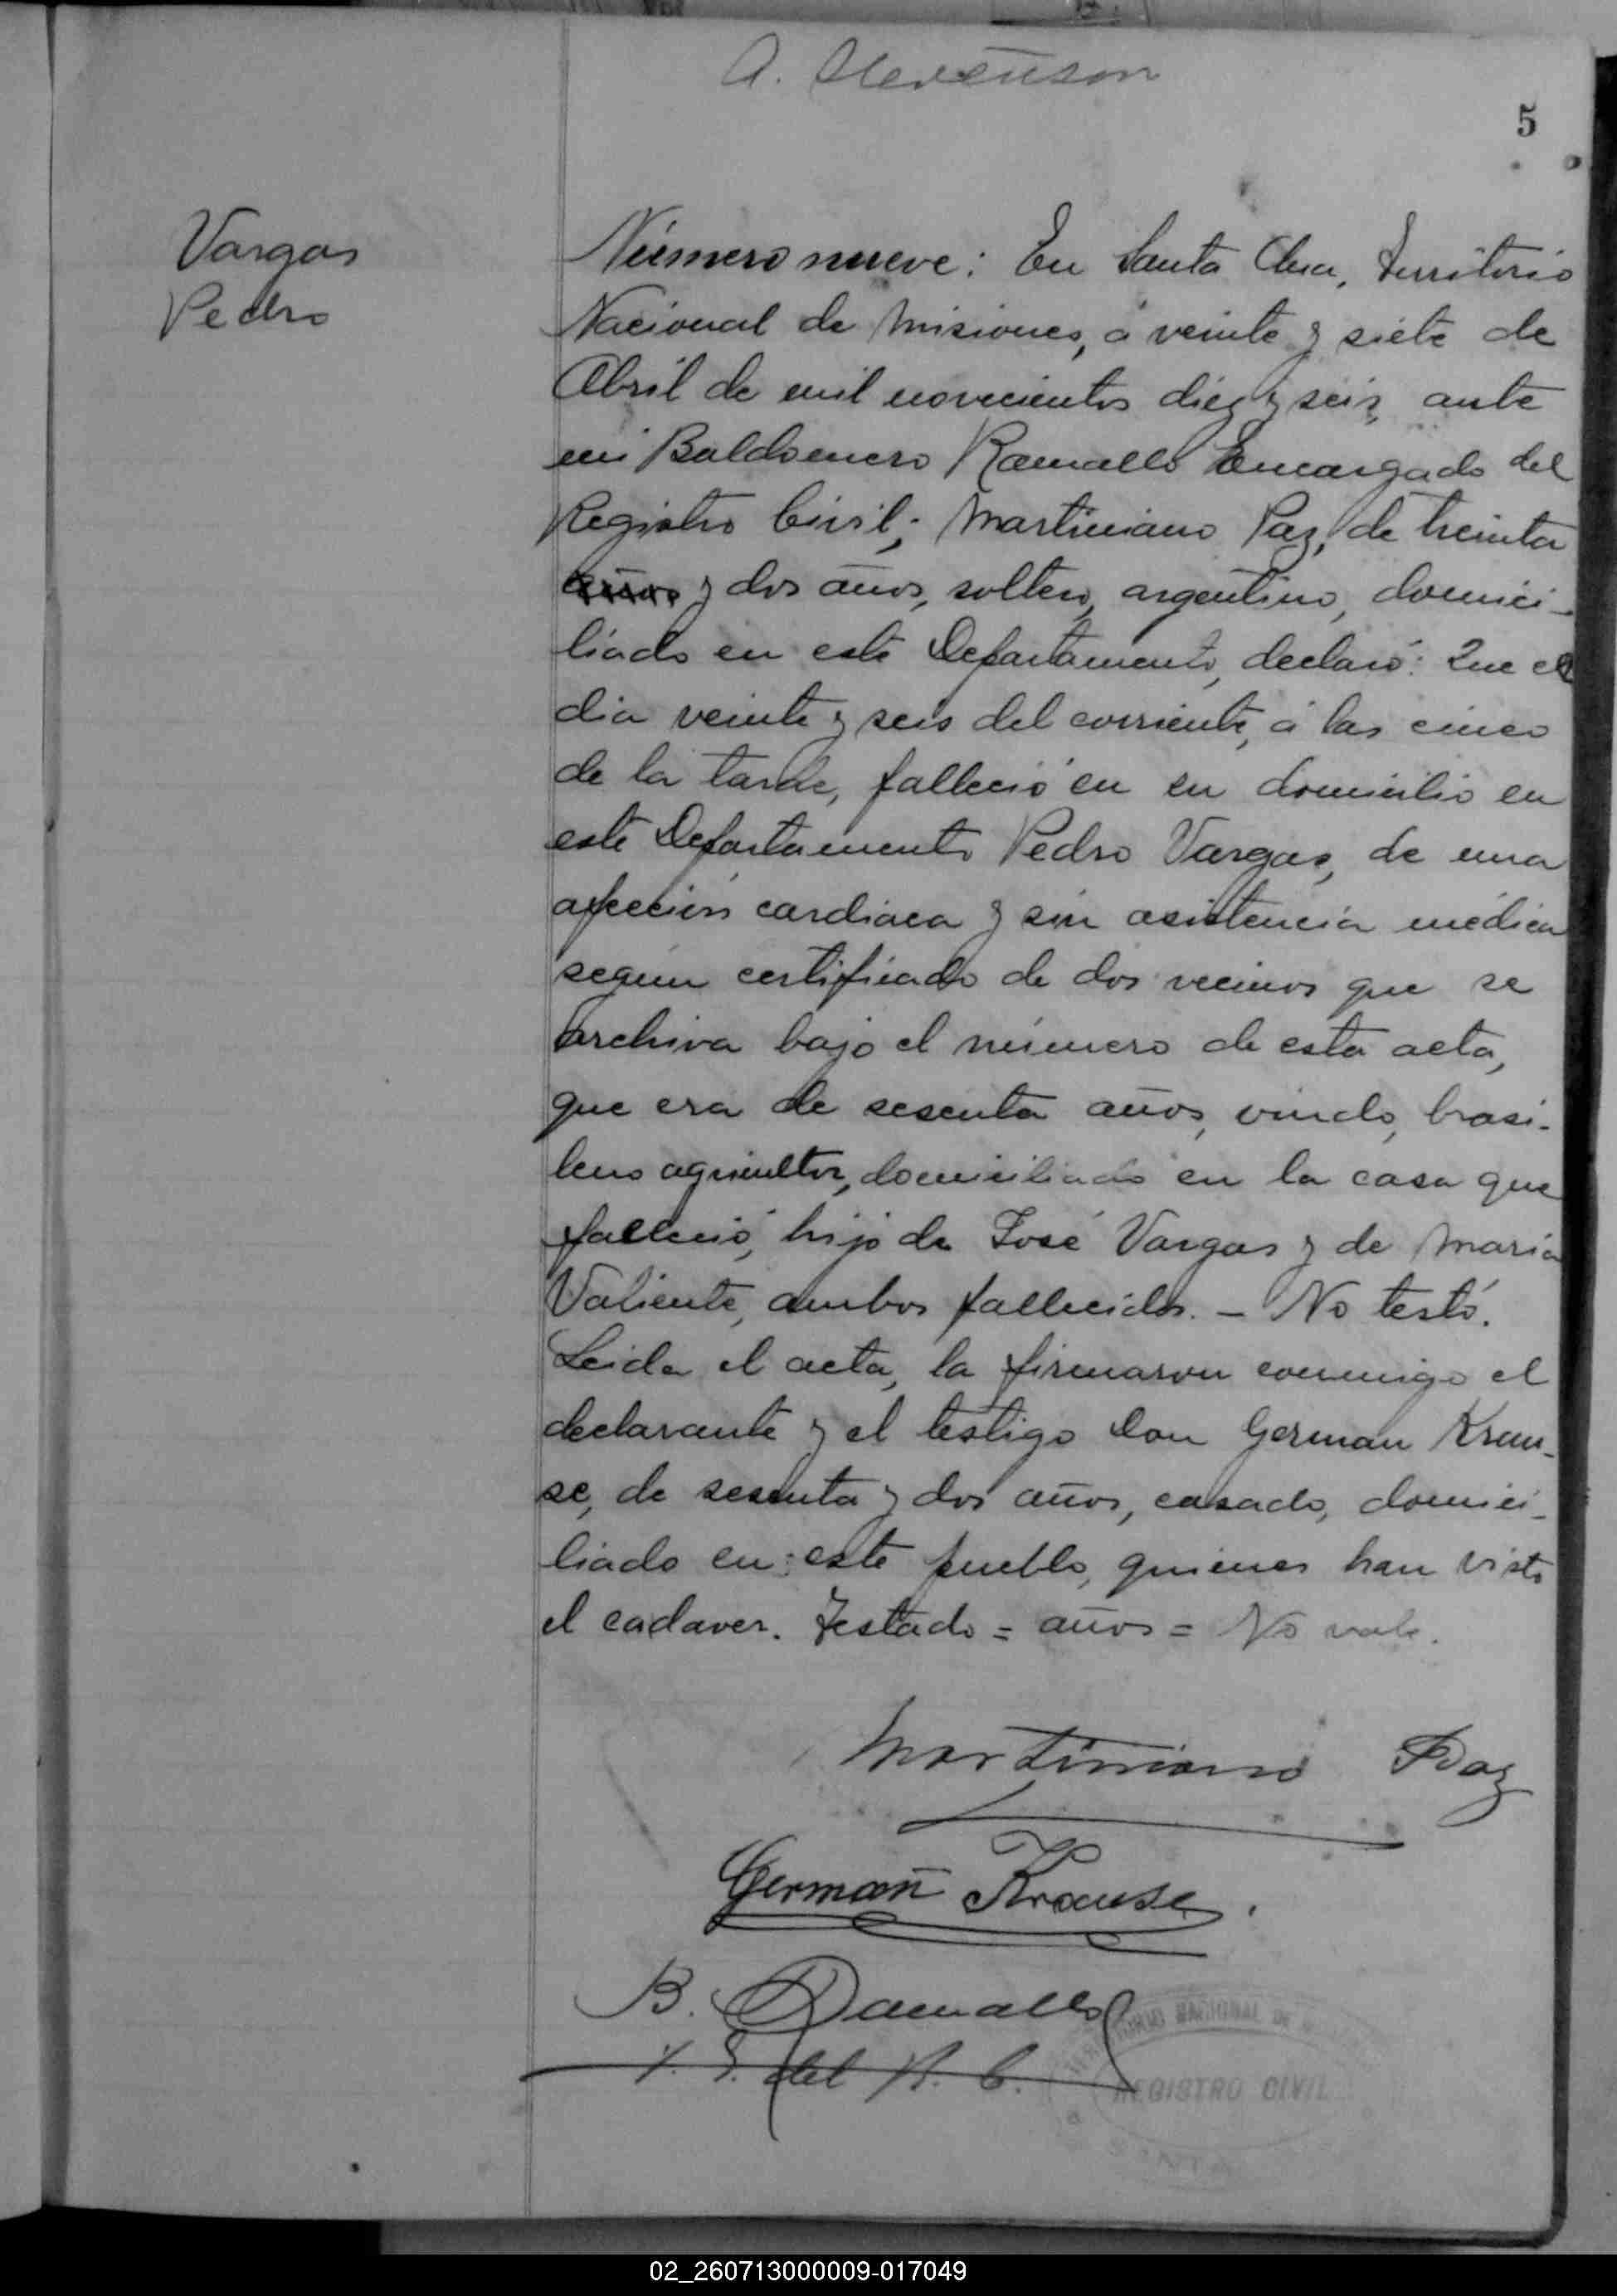 A. Stevenson
5
Vargas
Pedro
Número nueve: En Santa Ana, Territorio
Nacional de Misiones, á veinte y siete de
Abril de mil novecientos diez y seis, ante
mi Baldomero Ramallo Encargado del
Registro Civil; Martiniano Paz, de treinta
años y dos años, soltero, argentino, domici-
liado en este Departamento, declaró: Que el
dia veinte y seis del corriente, á las cinco
de la tarde, falleció en su domicilio en
este Departamento Pedro Vargas, de una
afección cardiaca y sin asistencia médica
según certificado de dos vecinos que se
archiva bajo el número de esta acta,
que era de sesenta años, viudo, brasi-
lero agricultor, domiciliado en la casa que
falleció, hijo de José Vargas y de María
Valiente, ambos fallecidos. - No testó.
Leida el acta, la firmaron conmigo el
declarante y el testigo Don German Krau-
se, de sesenta y dos años, casado, domici-
liado en este pueblo, quienes han visto
el cadaver. Testado = años = No vale.
Martiniano Paz
German Krause.
B. Ramallo
E. del R. C.
NACIONAL DE
REGISTRO CIVIL
02_260713000009-017049